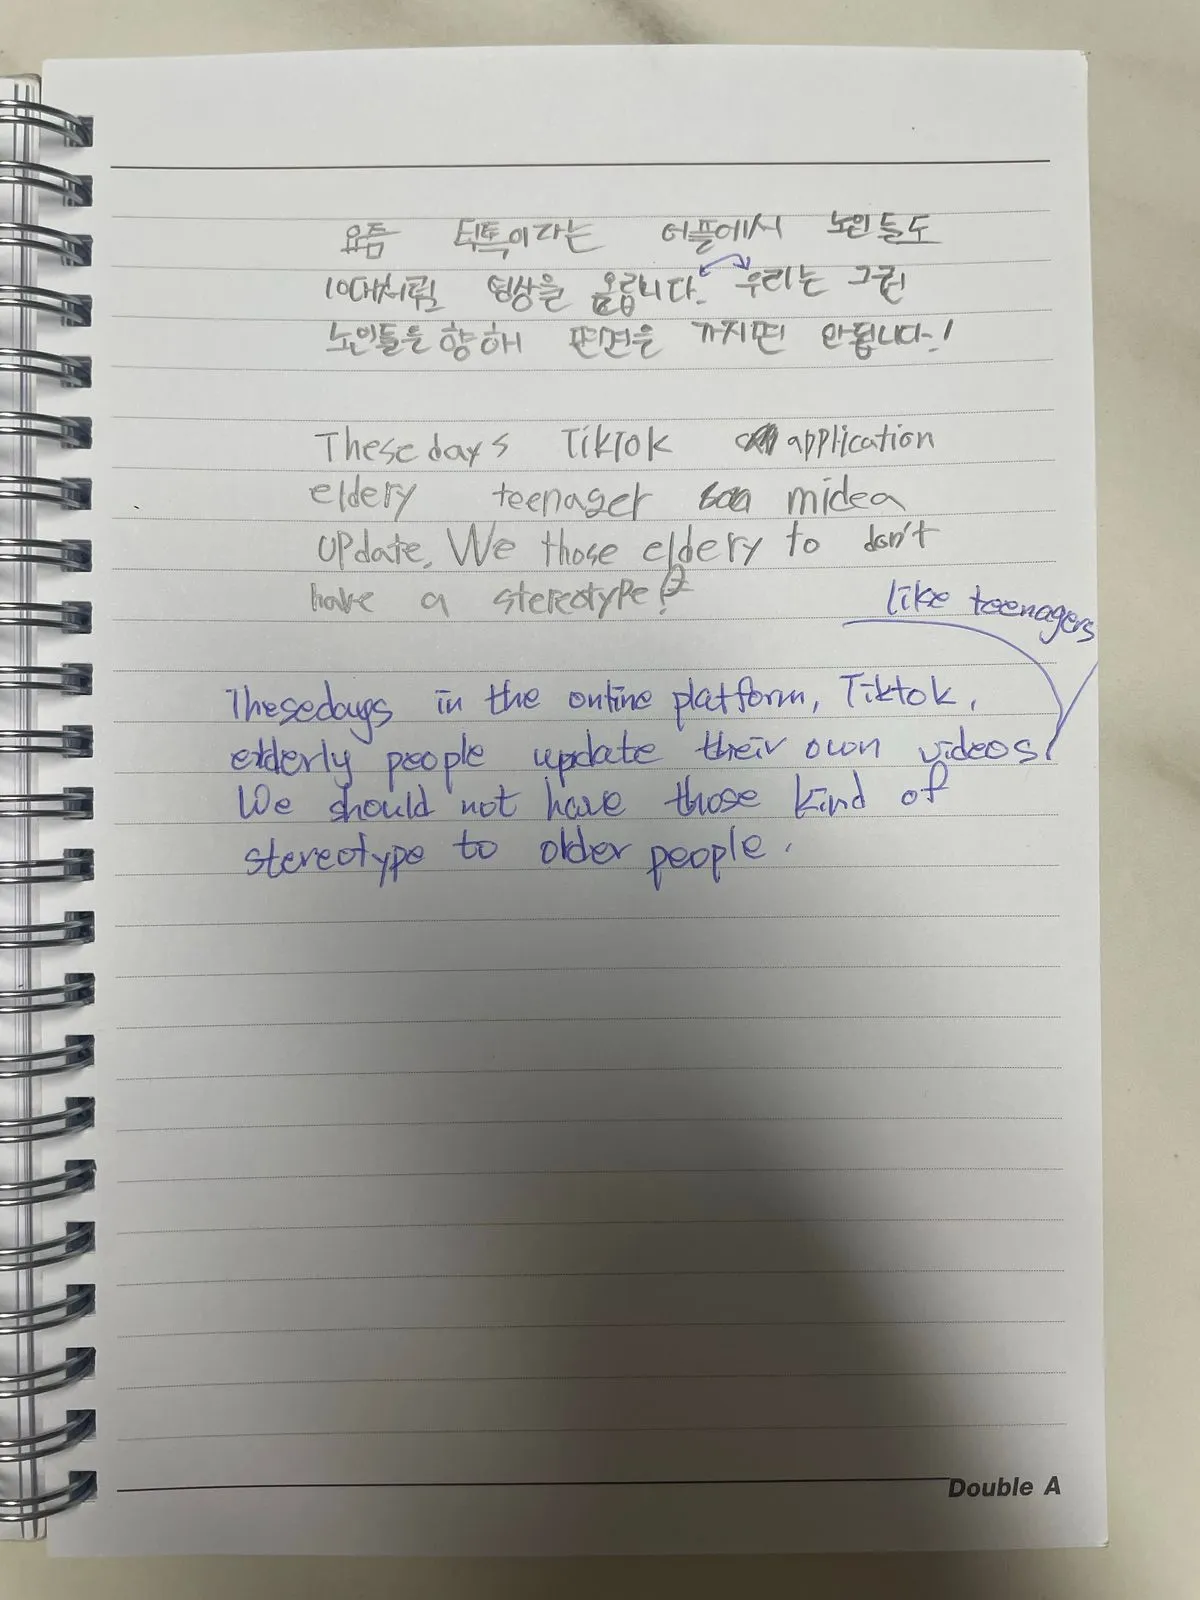 요즘 틱톡이라는 어플에서 노인들도
10대처럼 영상을 올립니다. 우리는 그런
노인들을 향해 편견을 가지면 안됩니다!
Thesedays TikTok application
eldery teenager midea
update. We those eldery to don't
have a stereotype!
like teenagers
Thesedays in the online platform, Tiktok,
elderly people update their own videos.
We should not have those kind of
stereotype to older people.
Double A